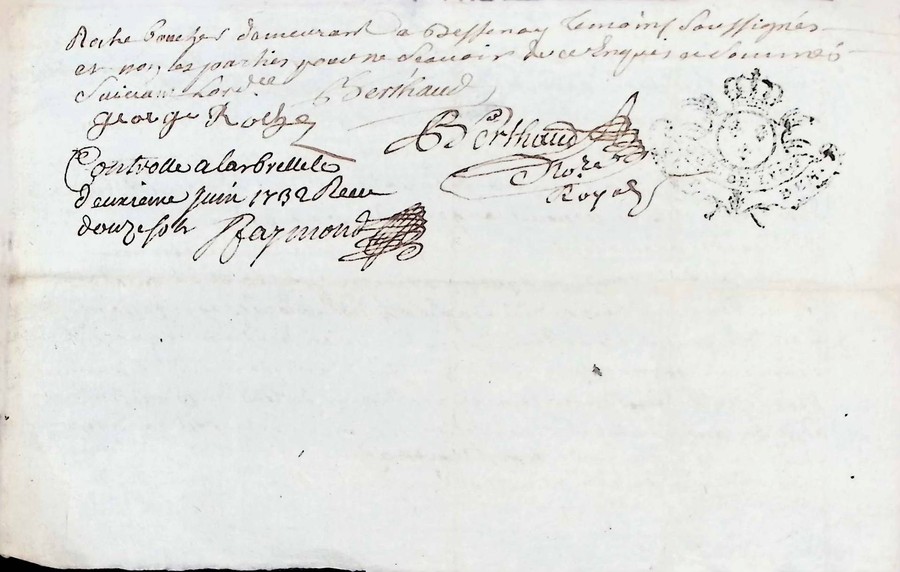 Roche boucher demeurant a Bessenay temoins soussignés
et non les parties pour ne scavoir de ce Enquis et sommés
suivant Lord.ce Berthaud
george Roche
Berthaud
No.re
Royal
Controlle a larbrelle le
deuxieme juin 1732 Receu
douze sols Raymond